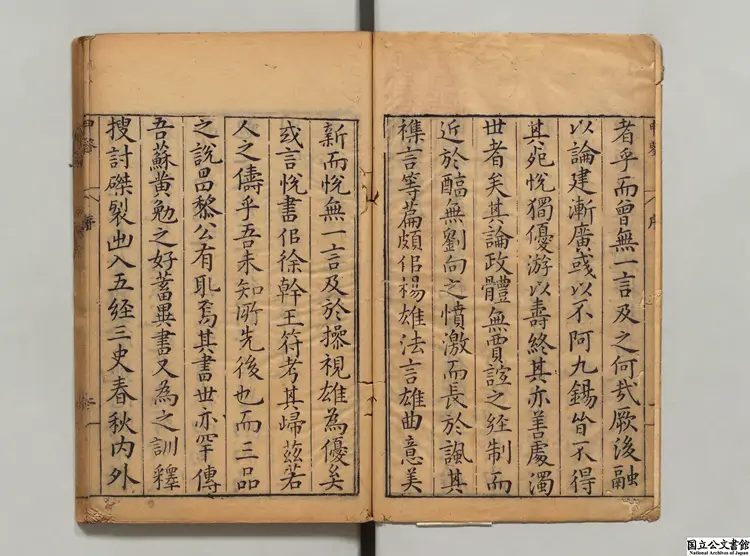 者乎而曾無一言及之何哉厥後融
以論建漸廣彧以不阿九錫皆不得
其死悅獨優游以壽終其亦善處濁
世者矣其論政體無賈誼之經制而
近於醖無劉向之憤激而長於諷其
襍言等篇頗佀楊雄法言雄曲意美
新而悅無一言及於操視雄為優矣
或言悅書佀徐幹王符考其歸茲若
人之儔乎吾未知所先後也而三品
之說昌黎公有耴焉其書世亦罕傳
吾蘇黃勉之好蓄異書又為之訓釋
搜討磔裂出入五經三史春秋內外
国立公文書館
National Archives of Japan